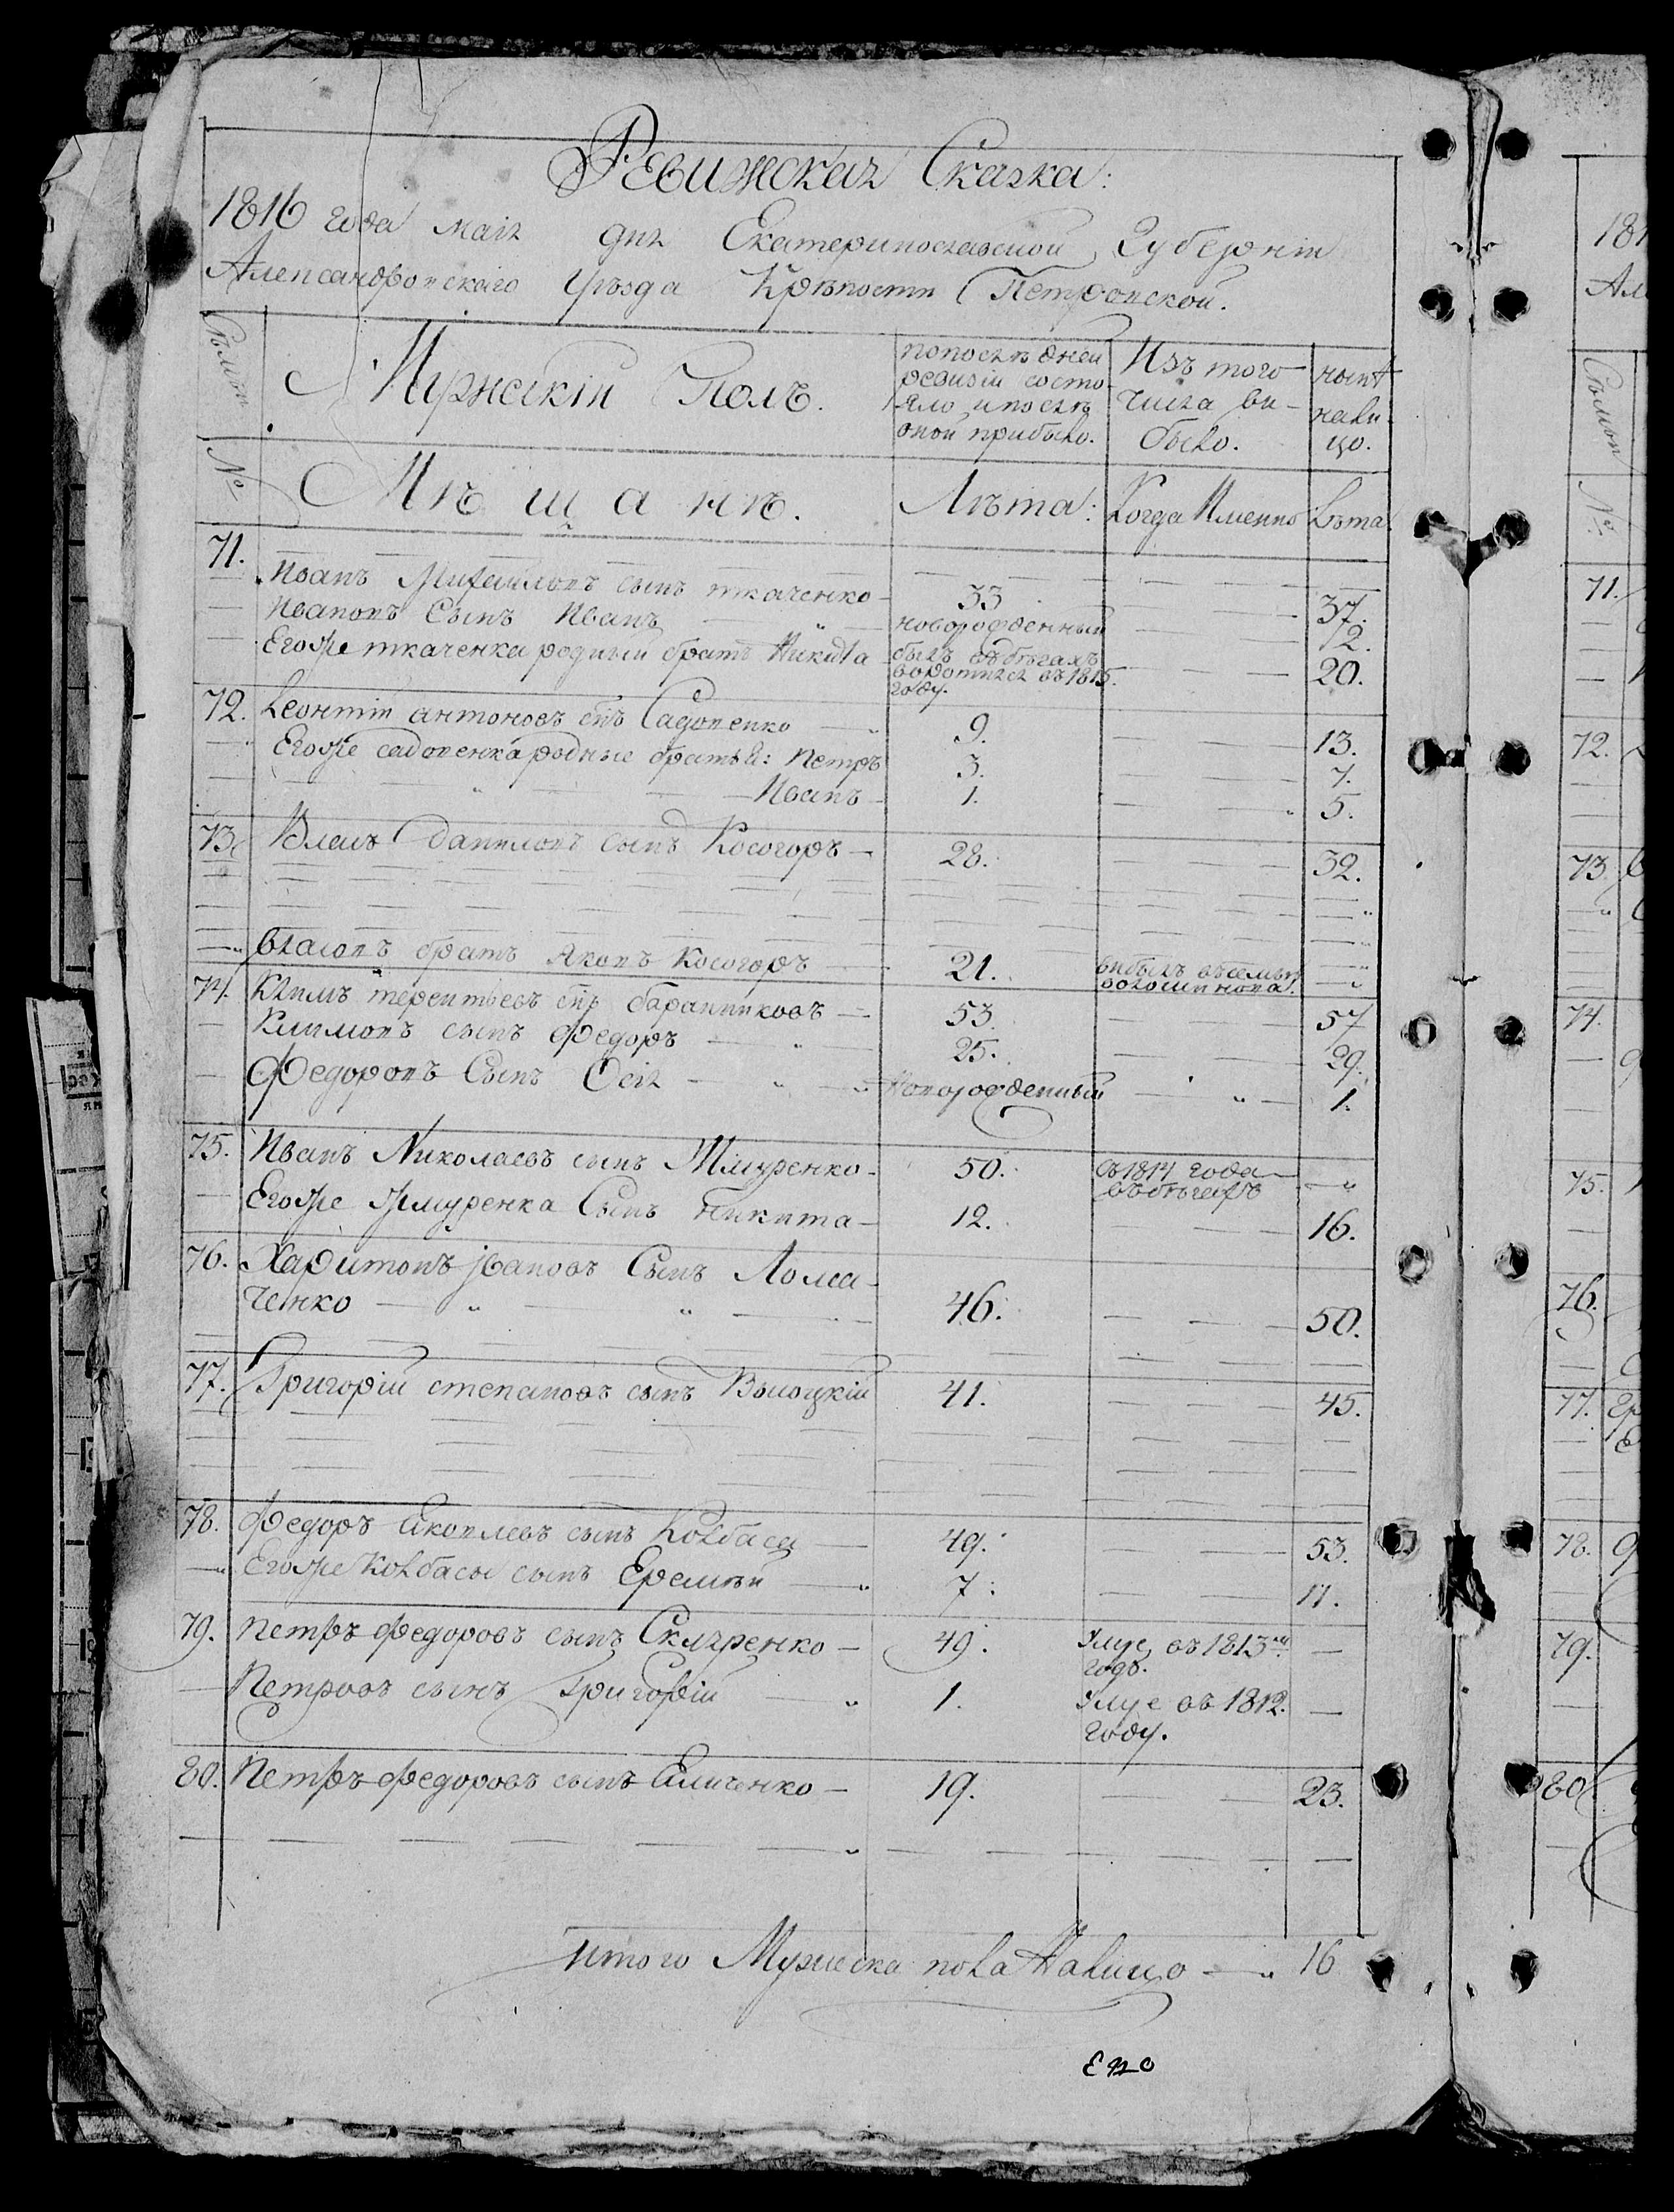 Ревижская Сказка:
1816 года маія дня Екатеринославской Губерніи
Александровскаго Уѣзда Крѣпости Петровской.
Семьи
Мужескій Полъ.
По последней
ревизіи состо-
яло и послѣ
оной прибыло.
Изъ того
числа вы-
было.
нынѣ
нали-
цо.
№
Мѣщанѣ.
Лѣта:
Когда Именно
Лѣта
71. Иванъ Михайловъ сынъ ткаченко 33 37.
Ивановъ Сынъ Иванъ новорожденный 2.
Егоже ткаченка родный братъ Никита былъ въ бѣгахъ воротился въ 1815. году. 20.
72. Леонтій антоновъ снъ Садовенко 9. 13.
Егоже садовенка родные братья: Петръ 3. 7.
Иванъ 1. 5.
73. Власъ даниловъ сынъ Косогоръ 28. 32.
власовъ братъ Яковъ Косогоръ 21. выбылъ въ семью волошинова.
74. Климъ терентьевъ снъ баранниковъ 53. 57
Климовъ сынъ Федоръ 25. 29.
Федоровъ Сынъ Осія Новорожденный 1.
75. Иванъ Николаевъ сынъ Жмуренко 50. съ 1814 года въ бѣгахъ
Егоже жмуренка Сынъ Никита 12. 16.
76. Харитонъ Ивановъ Сынъ Лома-
ченко 46. 50.
77. Григорій степановъ сынъ Высоцкій 41. 45.
78. Федоръ Яковлевъ сынъ Ковбаса 49. 53.
Егоже Ковбасы сынъ Еремѣй 7. 11.
79. Петръ Федоровъ сынъ Скляренко 49. Умре въ 1813м годѣ.
Петровъ сынъ Григорій 1. Умре въ 1812. году.
80. Петръ Федоровъ сынъ 19. 23.
Итого Мужеска пола Налицо 16
181
Але
Семьи
№
71.
72.
73.
74.
75.
76.
77.
78.
79.
80